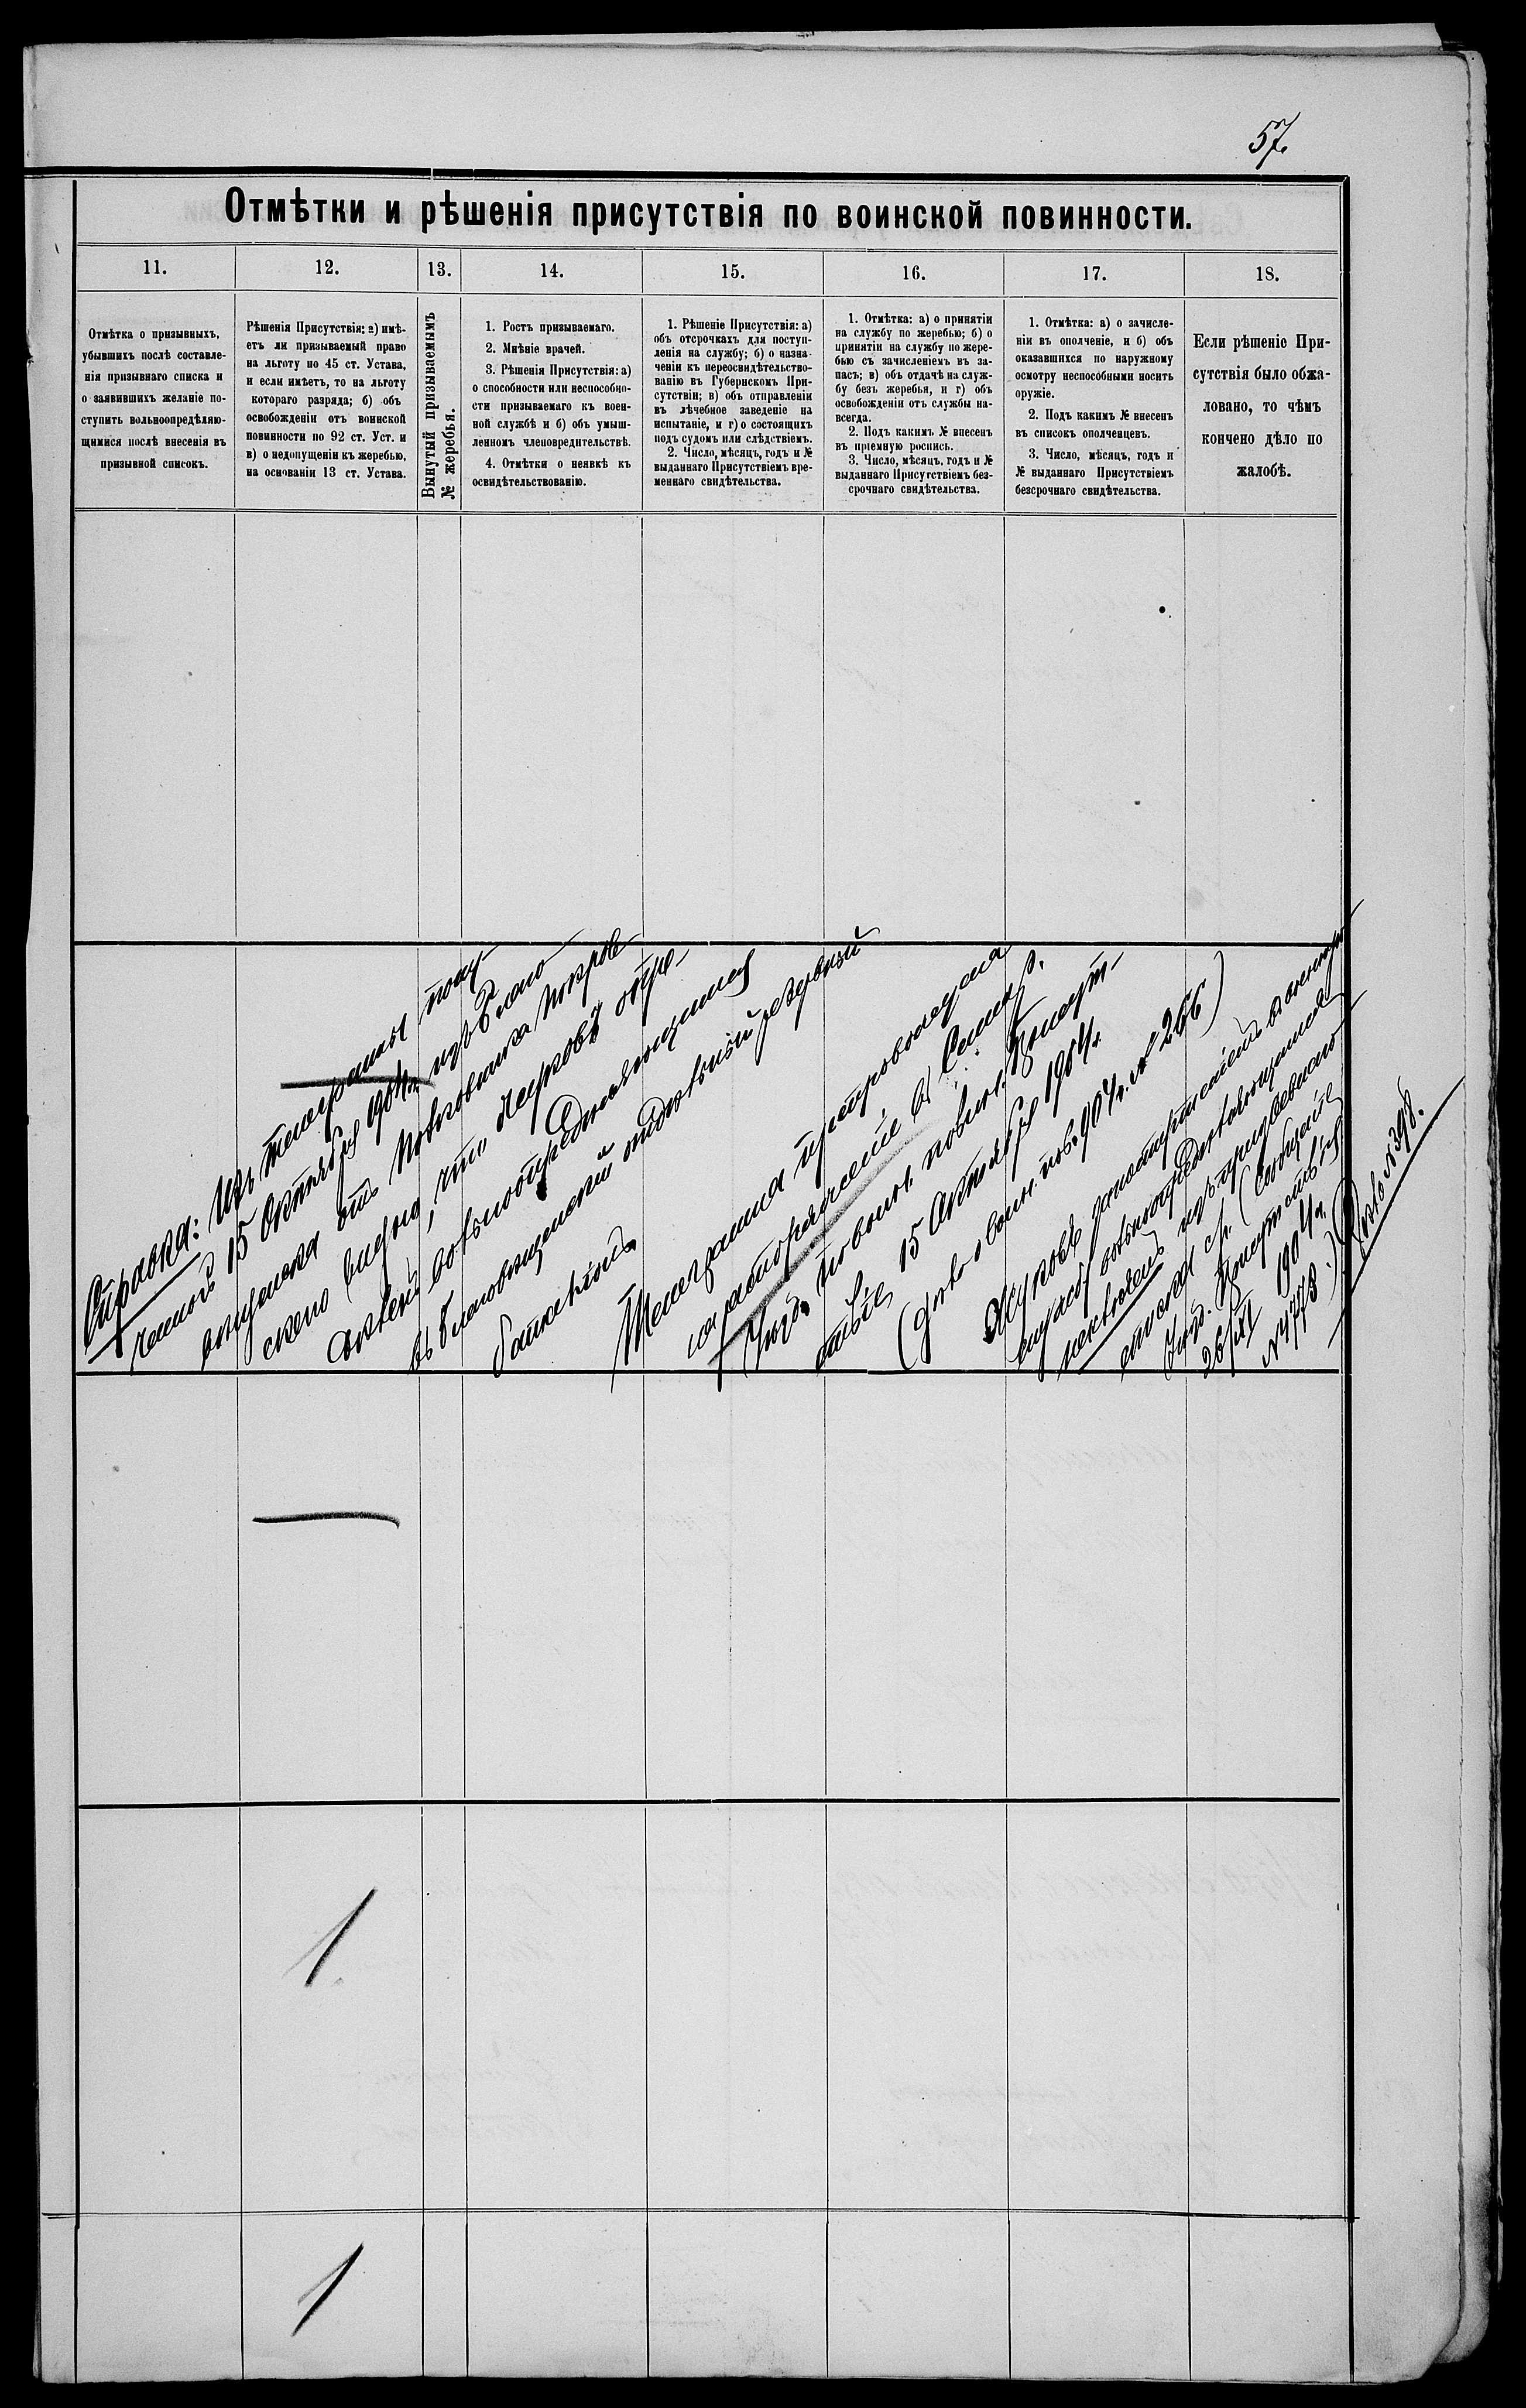 57.
Отмѣтки и рѣшенія присутствія по воинской повинности.
11.
12.
13.
14.
15.
16.
17.
18.
Отмѣтка о призывныхъ,
убывшихъ послѣ составле-
нія призывнаго списка и
о заявившихъ желаніе по-
ступить вольноопредѣляю-
щимися послѣ внесенія въ
призывной списокъ.
Рѣшенія Присутствія: а) имѣ-
етъ ли призываемый право
на льготу по 45 ст. Устава,
и если имѣетъ, то на льготу
котораго разряда; б) объ
освобожденіи отъ воинской
повинности по 92 ст. Уст. и
в) о недопущеніи къ жеребью,
на основаніи 13 ст. Устава.
Вынутый призываемымъ
№ жеребья.
1. Ростъ призываемаго.
2. Мнѣніе врачей.
3. Рѣшенія Присутствія: а)
о способности или неспособно-
сти призываемаго къ воен-
ной службѣ и б) объ умыш-
ленномъ членовредительствѣ.
4. Отмѣтки о неявкѣ къ
освидѣтельствованію.
1. Рѣшеніе Присутствія: а)
объ отсрочкахъ для поступ-
ленія на службу; б) о назна-
ченіи къ переосвидѣтельство-
ванію въ Губернскомъ При-
сутствіи; в) объ отправленіи
въ лѣчебное заведеніе на
испытаніе, и г) о состоящихъ
подъ судомъ или слѣдствіемъ.
2. Число, мѣсяцъ, годъ и №
выданнаго Присутствіемъ вре-
меннаго свидѣтельства.
1. Отмѣтка: а) о принятіи
на службу по жеребью; б) о
принятіи на службу по жере-
бью съ зачисленіемъ въ за-
пасъ; в) объ отдачѣ на служ-
бу безъ жеребья, и г) объ
освобожденіи отъ службы на-
всегда.
2. Подъ какимъ № внесенъ
въ пріемную роспись.
3. Число, мѣсяцъ, годъ и №
выданнаго Присутствіемъ без-
срочнаго свидѣтельства.
1. Отмѣтка: а) о зачисле-
ніи въ ополченіе, и б) объ
оказавшихся по наружному
осмотру неспособными носить
оружіе.
2. Подъ какимъ № внесенъ
въ списокъ ополченцевъ.
3. Число, мѣсяцъ, годъ и
№ выданнаго Присутствіемъ
безсрочнаго свидѣтельства.
Если рѣшеніе При-
сутствія было обжа-
ловано, то чѣмъ
кончено дѣло по
жалобѣ.
Справка: Изъ телеграммы полу-
ченной 15 Октября 1904 г. изъ Благо
вѣщенска отъ Полковника Покров
скаго видно, что Жуковъ опре-
дѣленъ вольноопредѣляющимся
въ Благовѣщенскій отдѣльный резервный
баталіонъ
Телеграмма препровождена
на распоряженіе въ
Уѣзд. по воинск. повин. Присут-
ствіе 15 Октября 1904 г.
(дѣло о воин. пов. 904 г. № 266)
Жуковъ
вольноопредѣляющимся
исключенъ изъ призывнаго
списка с/г. (сообщеніе
Уѣзд. Присутствія
26/XI 1904 г.
№ 4778) Дѣло № 398.
1
1